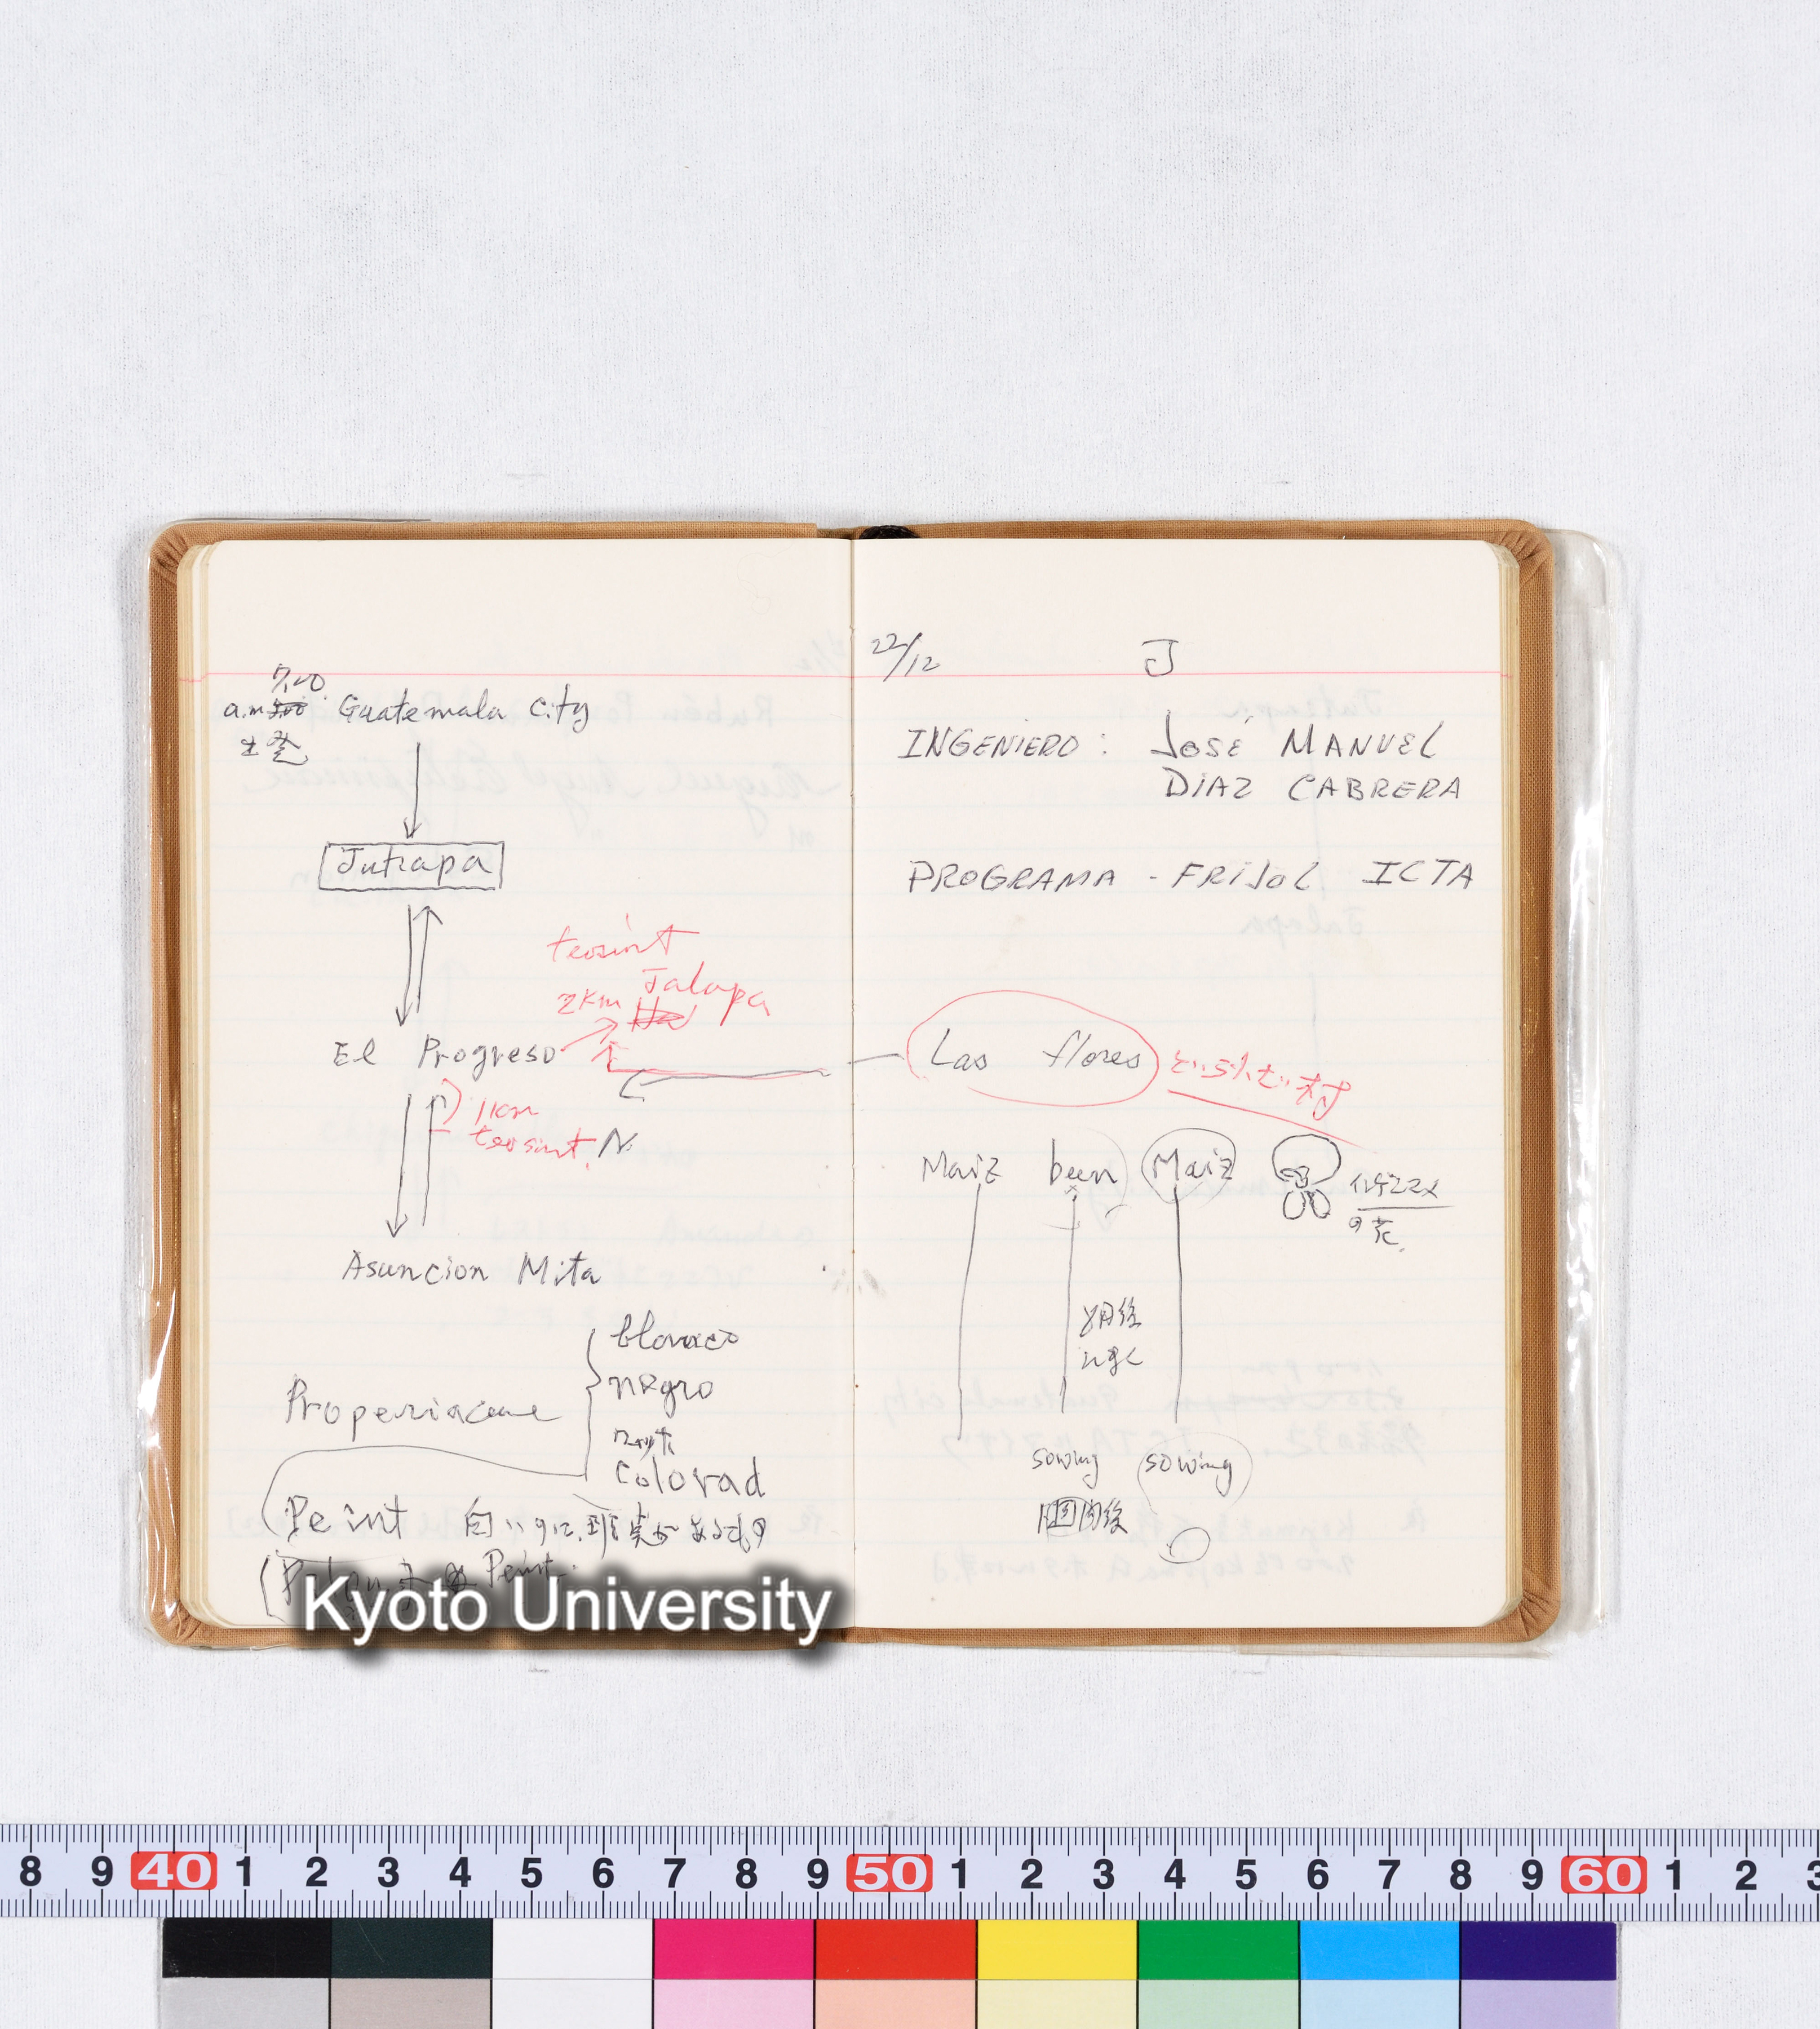 7.00
a.m. Guatemala City
出発
Jutiapa
teosint
Jalapa
2km
El Progreso
1km
teosint, N.
Asuncion Mita
blanco
negro
Colorad
Peint 白いのに、斑点があるもの
Peint
22/12 J
INGENIERO: JOSÉ MANUEL
DIAZ CABRERA
PROGRAMA - FRIJOL ICTA
Las flores
Maiz been Maiz
の花
sowing sowing
Kyoto University
8 9 40 1 2 3 4 5 6 7 8 9 50 1 2 3 4 5 6 7 8 9 60 1 2 3